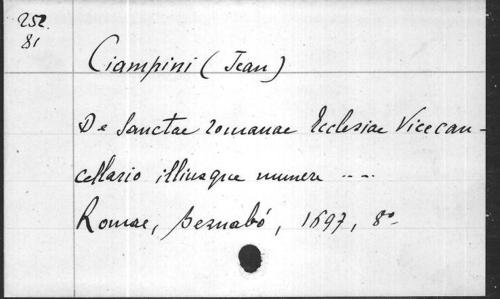 252
81
Ciampini (Jean)
De Sanctae romanae Ecclesiae Vicecan-
cellario illiusque munere ...
Romae, Bernabó, 1697, 8º